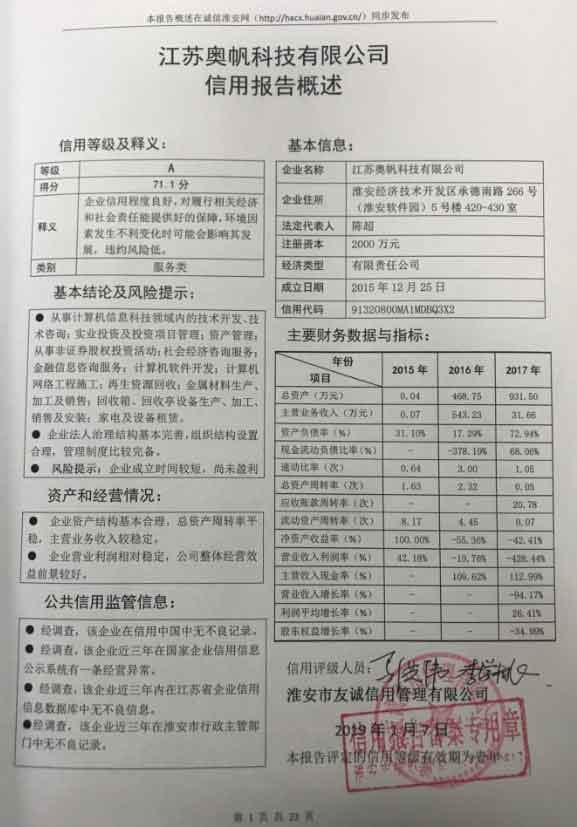 本报告概述在诚信淮安网（http://hacx.huaian.gov.cn/）同步发布
江苏奥帆科技有限公司
信用报告概述
信用等级及释义：
等级 A
得分 71.1 分
释义 企业信用程度良好，对履行相关经济
和社会责任能提供好的保障，环境因
素发生不利变化时可能会影响其发
展，违约风险低。
类别 服务类
基本结论及风险提示：
● 从事计算机信息科技领域内的技术开发、技
术咨询；实业投资及投资项目管理；资产管理；
从事非证券股权投资活动；社会经济咨询服务；
金融信息咨询服务；计算机软件开发；计算机
网络工程施工；再生资源回收；金属材料生产、
加工及销售；回收箱、回收亭设备生产、加工、
销售及安装；家电及设备租赁。
● 企业法人治理结构基本完善，组织结构设置
合理，管理制度比较完备。
● 风险提示：企业成立时间较短，尚未盈利
资产和经营情况：
● 企业资产结构基本合理，总资产周转率平
稳，主营业务收入较稳定。
● 企业营业利润相对稳定，公司整体经营效
益前景较好。
公共信用监管信息：
● 经调查，该企业在信用中国中无不良记录。
● 经调查，该企业近三年在国家企业信用信息
公示系统有一条经营异常。
● 经调查，该企业近三年内在江苏省企业信用
信息数据库中无不良信息。
●经调查，该企业近三年在淮安市行政主管部
门中无不良记录。
基本信息：
企业名称 江苏奥帆科技有限公司
企业住所 淮安经济技术开发区承德南路 266 号
（淮安软件园）5 号楼 420-430 室
法定代表人 陈超
注册资本 2000 万元
经济类型 有限责任公司
成立日期 2015 年 12 月 25 日
信用代码 91320800MA1MDBQ3X2
主要财务数据与指标：
年份 项目 2015 年 2016 年 2017 年
总资产（万元） 0.04 468.75 931.50
主营业务收入（万元） 0.07 543.23 31.66
资产负债率（%） 31.10% 17.29% 72.94%
现金流动负债比率（%） - -378.19% 68.06%
速动比率（%） 0.64 3.00 1.05
总资产周转率（次） 1.63 2.32 0.05
应收账款周转率（次） - - 20.78
流动资产周转率（次） 8.17 4.45 0.07
净资产收益率（%） 100.00% -55.36% -42.41%
营业收入利润率（%） 42.18% -19.76% -428.44%
主营收入现金率（%） - 109.62% 112.99%
营业收入增长率（%） - - -94.17%
利润平均增长率（%） - - 26.41%
股东权益增长率（%） - - -34.99%
信用评级人员：
淮安市友诚信用管理有限公司
2019 年 1 月 7 日
信用报告备案专用章
本报告评定的信用等级有效期为壹年
第 1 页 共 23 页